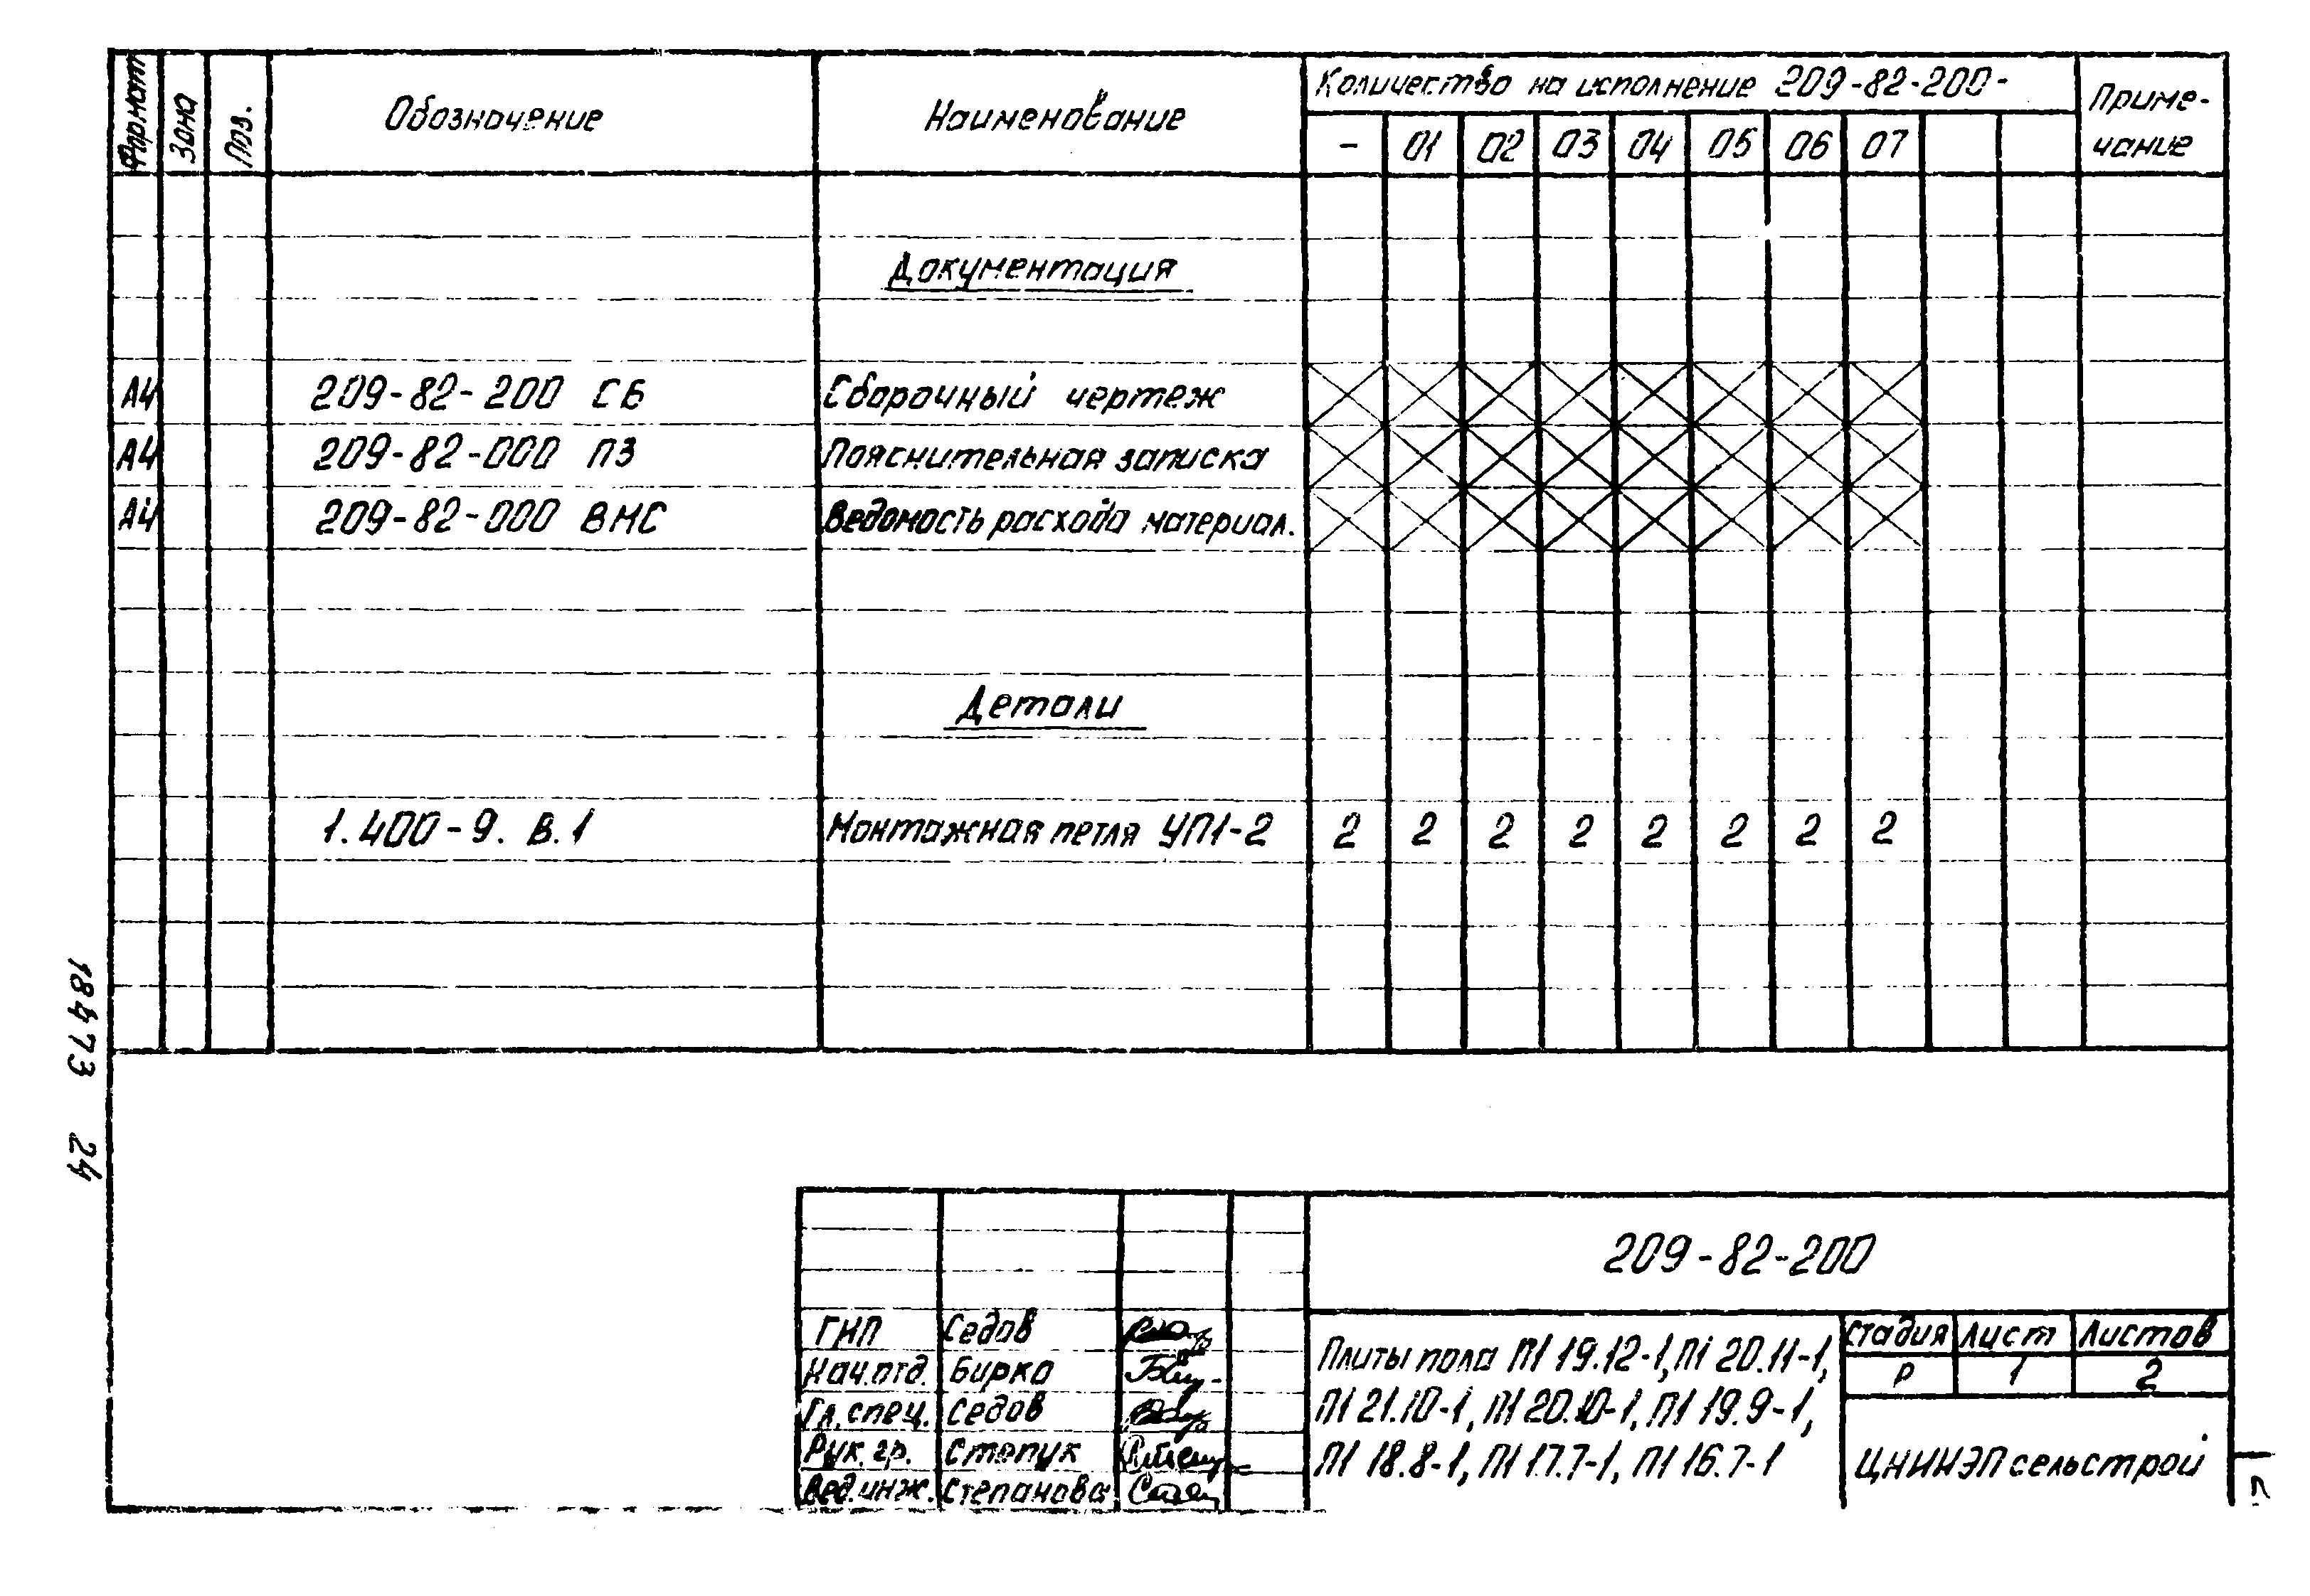 Формат Зона Поз. Обозначение Наименование Количество на исполнение 209-82-200- Приме-
чание
- 01 02 03 04 05 06 07
Документация
А4 209-82-200 СБ Сборочный чертеж
А4 209-82-000 ПЗ Пояснительная записка
А4 209-82-000 ВМС Ведомость расхода материал.
Детали
1.400-9. В.1 Монтажная петля УП1-2 2 2 2 2 2 2 2 2
18473 24
209-82-200
ГИП Седов
Нач.отд. Бирко
Гл.спец. Седов
Рук. гр. Степук
Вед.инж. Степанова
Плиты пола П1 19.12-1, П1 20.11-1,
П1 21.10-1, П1 20.10-1, П1 19.9-1,
П1 18.8-1, П1 17.7-1, П1 16.7-1
Стадия Лист Листов
Р 1 2
ЦНИИЭПсельстрой